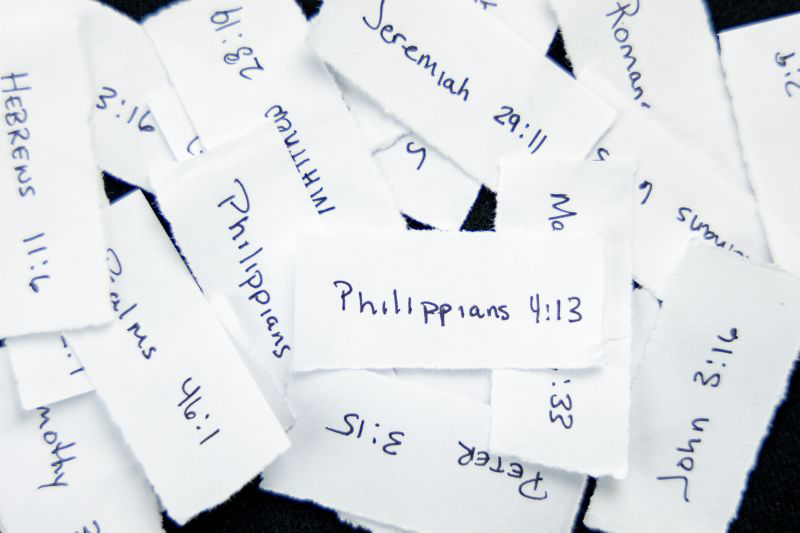 HEBREWS 11:6
3:16
MATTHEW 28:19
Jeremiah 29:11
Roman
Philippians
Philippians 4:13
Psalms 46:1
:33
John 3:16
PETER 3:15
mothy